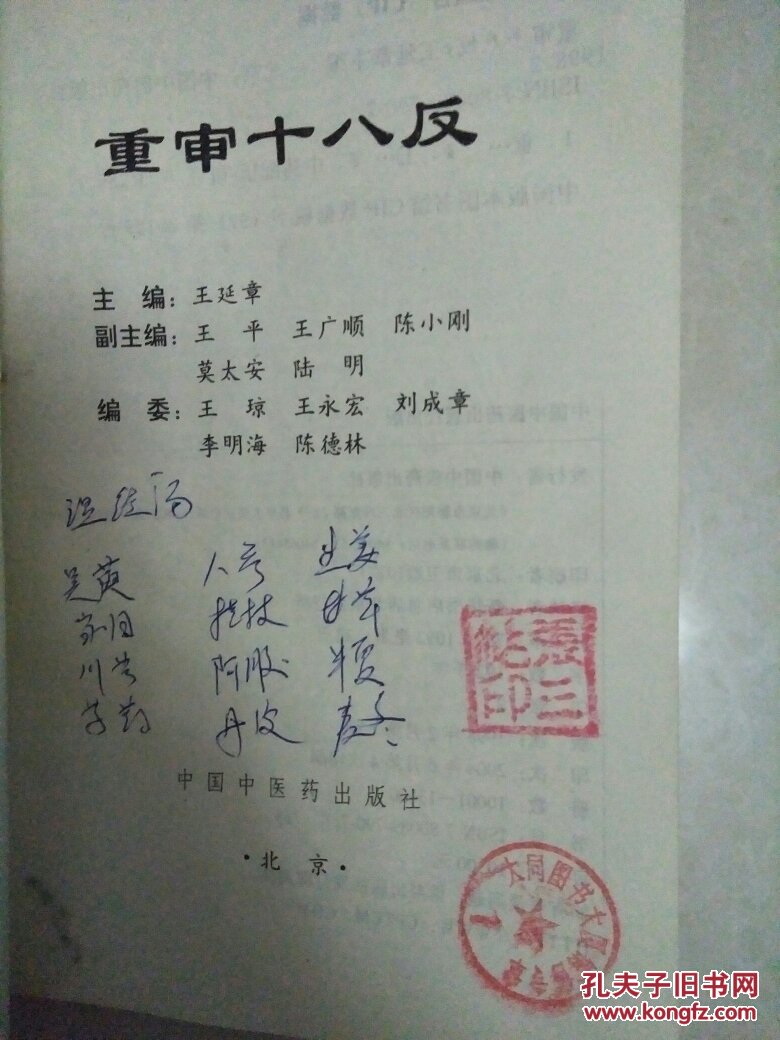 重审十八反
主 编：王延章
副主编：王 平 王广顺 陈小刚
莫太安 陆 明
编 委：王 琼 王永宏 刘成章
李明海 陈德林
温经汤
吴萸 人参 生姜
当归 桂枝 甘草
川芎 阿胶 半夏
芍药 丹皮 麦冬
张三
印
中国中医药出版社
·北京·
大同图书大厦
孔夫子旧书网
www.kongfz.com